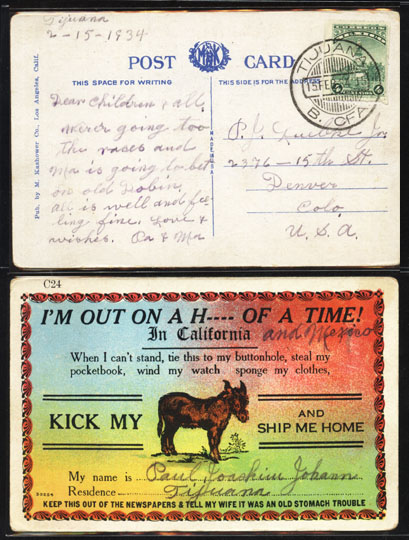 Tijuana
2-15-1934
POST CARD
M&K
THIS SPACE FOR WRITING
THIS SIDE IS FOR THE ADDRESS
Pub. by M. Kashower Co., Los Angeles, Calif.
TIJUANA
15 FEB
B. CFA.
Dear Children & all,
we're going too
the races and
Ma is going to bet
on old Dobin,
all is well and fee-
ling fine. Love &
wishes. Pa & Ma
P. J. Jr.
2376-15th St.
Denver
Colo
U. S. A.
C24
I'M OUT ON A H---- OF A TIME!
In California and Mexico
When I can't stand, tie this to my buttonhole, steal my
pocketbook, wind my watch sponge my clothes,
KICK MY
AND
SHIP ME HOME
My name is Paul Joachim Johann
Residence Tijuana
KEEP THIS OUT OF THE NEWSPAPERS & TELL MY WIFE IT WAS AN OLD STOMACH TROUBLE